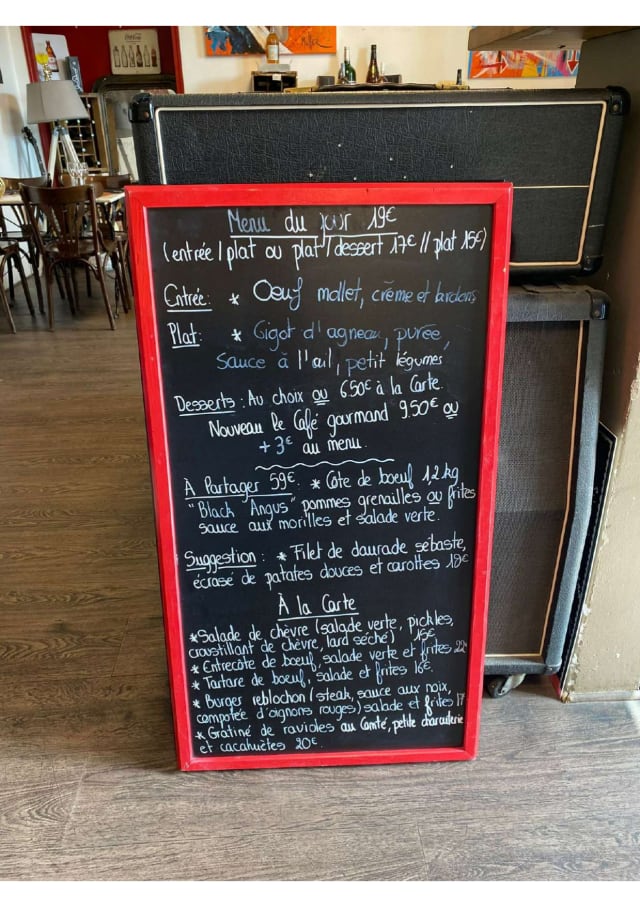 Menu du jour 19€
(entrée / plat ou plat / dessert 17€ // plat 15€)
Entrée: * Oeuf mollet, crème et lardons
Plat: * Gigot d'agneau, purée,
sauce à l'ail, petit légumes
Desserts: Au choix ou 6.50€ à la Carte.
Nouveau le Café gourmand 9.50€ ou
+3€ au menu.
À Partager 59€: * Côte de boeuf 1,2kg
"Black Angus" pommes grenailles ou frites
sauce aux morilles et salade verte.
Suggestion: * Filet de daurade sébaste,
écrasé de patates douces et carottes
À la Carte
*Salade de chèvre (salade verte, pickles,
croustillant de chèvre, lard séché) 15€
* Entrecôte de boeuf, salade verte et frites 22€
* Tartare de boeuf, salade et frites 16€.
* Burger reblochon (steak, sauce aux noix,
compotée d'oignons rouges) salade et frites 17
* Gratiné de ravioles au Comté, petite charcuterie
et cacahuètes 20€.